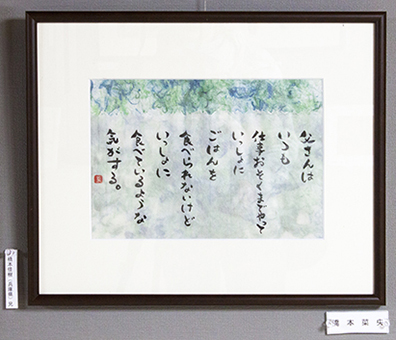 父さんは
いつも
仕事おそくまでやって
いっしょに
ごはんを
食べられないけど
いっしょに
食べているような
気がする。
橋本菜央